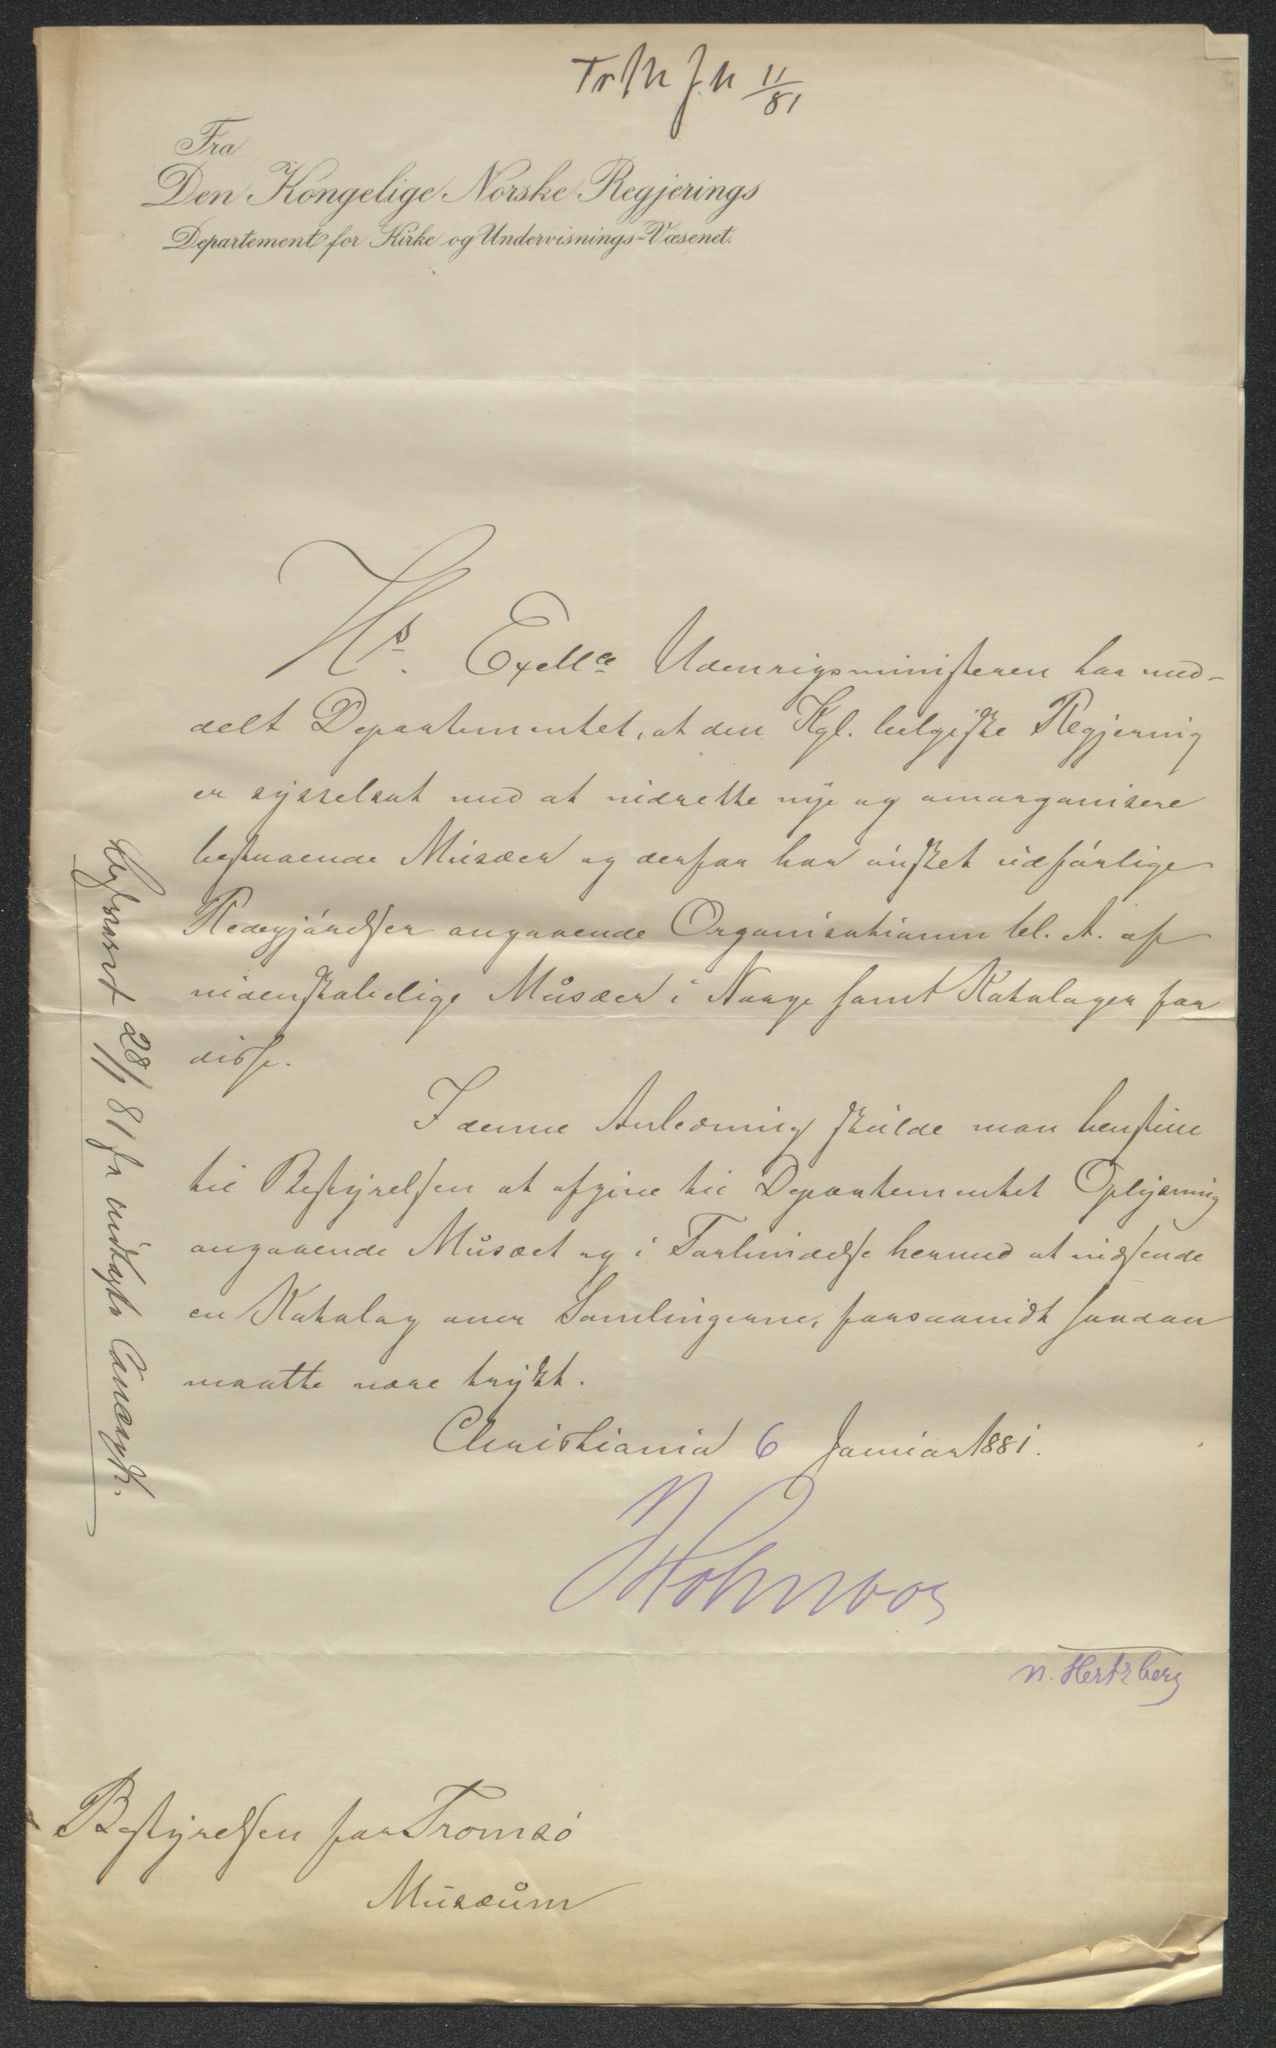 Tr M J. N 11/81
Fra
Den Kongelige Norske Regjerings
Departement for Kirke og Undervisnings-Væsenet.
Hs. Exellce Udenrigsministeren har med-
delt Departementet, at den Kgl. belgiske Regjering
er sysselsat med at indrette nye og omorganisere
bestaaende Musæer og derfor har ønsket udførlige
Redegjørelser angaaende Organisationen bl. A. af
videnskabelige Musæer i Norge samt Kataloger for
disse.
I denne Anledning skulde man henstille
til Bestyrelsen at afgive til Departementet Oplysning
angaaende Musæet og i Forbindelse hermed at indsende
en Katalog over Samlingerne, forsaavidt saadan
maatte være trykt.
Christiania 6 Januar 1881.
N. Hertzberg
Bestyrelsen for Tromsø
Musæum
Besvaret 28/1 81